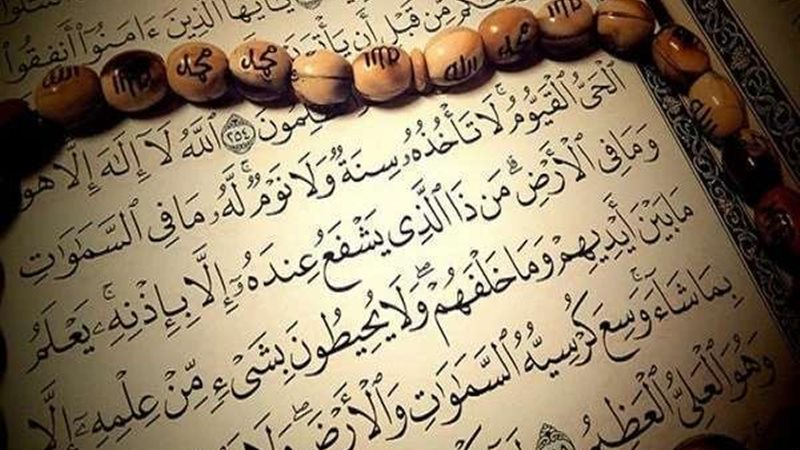 يَٰٓأَيُّهَا ٱلَّذِينَ ءَامَنُوٓا۟ أَنفِقُوا۟
مِّن قَبْلِ أَن
ٱللَّهُ لَآ إِلَٰهَ إِلَّا هُوَ ٢٥٤
ٱلْحَىُّ ٱلْقَيُّومُ ۚ لَا تَأْخُذُهُۥ سِنَةٌ وَلَا نَوْمٌ ۚ لَّهُۥ مَا فِى ٱلسَّمَٰوَٰتِ
وَمَا فِى ٱلْأَرْضِ ۗ مَن ذَا ٱلَّذِى يَشْفَعُ عِندَهُۥٓ إِلَّا بِإِذْنِهِۦ ۚ يَعْلَمُ
مَا بَيْنَ أَيْدِيهِمْ وَمَا خَلْفَهُمْ ۖ وَلَا يُحِيطُونَ بِشَىْءٍ مِّنْ عِلْمِهِۦٓ إِلَّا
بِمَا شَآءَ ۚ وَسِعَ كُرْسِيُّهُ ٱلسَّمَٰوَٰتِ وَٱلْأَرْضَ ۖ وَلَا
وَهُوَ ٱلْعَلِىُّ ٱلْعَظِيمُ
الله
محمد
محمد
الله
محمد
الله